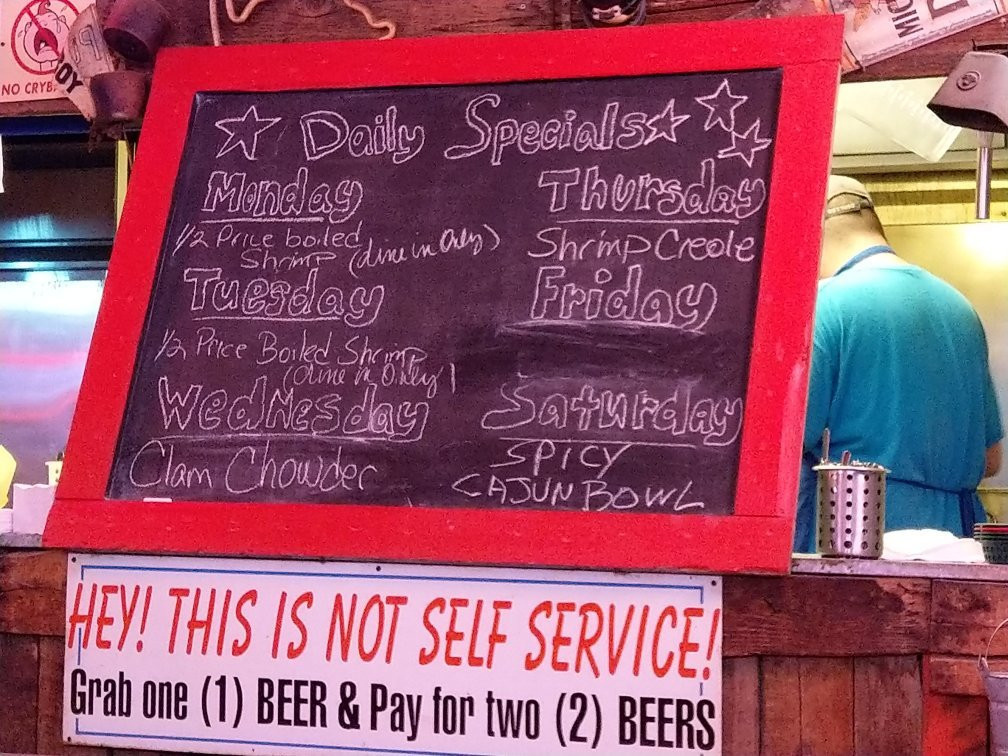 NO CRYB
Daily Specials
Monday
1/2 Price boiled
Shrimp (dine in Only)
Tuesday
1/2 Price Boiled Shrimp
(dine in Only)
Wednesday
Clam Chowder
Thursday
Shrimp Creole
Friday
Saturday
SPICY
CAJUN BOWL
HEY! THIS IS NOT SELF SERVICE!
Grab one (1) BEER & Pay for two (2) BEERS